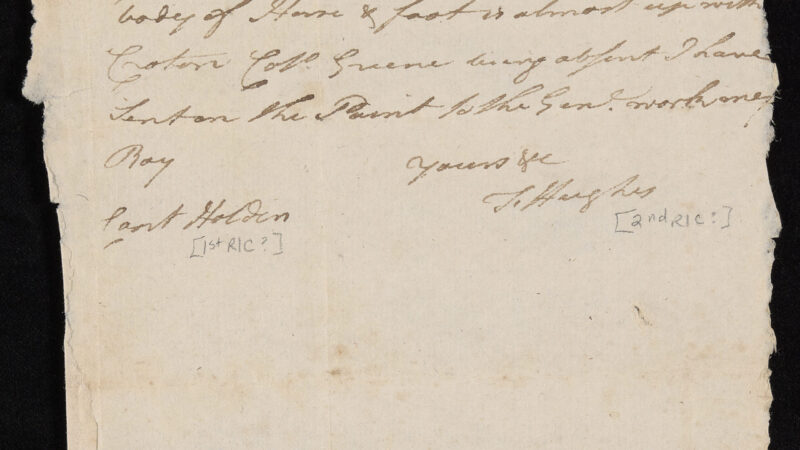 body of Horse & foot is almost up with
Croton Coll. Greene being absent I have
Sent on the to the Genl.
Boy Yours &c
T. Hughes
Capt Holden [2nd RIC?]
[1st RIC?]